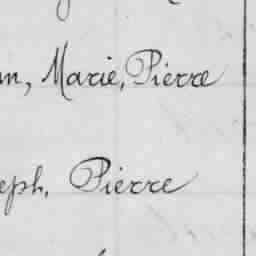 n, Marie, Pierre
eph, Pierre